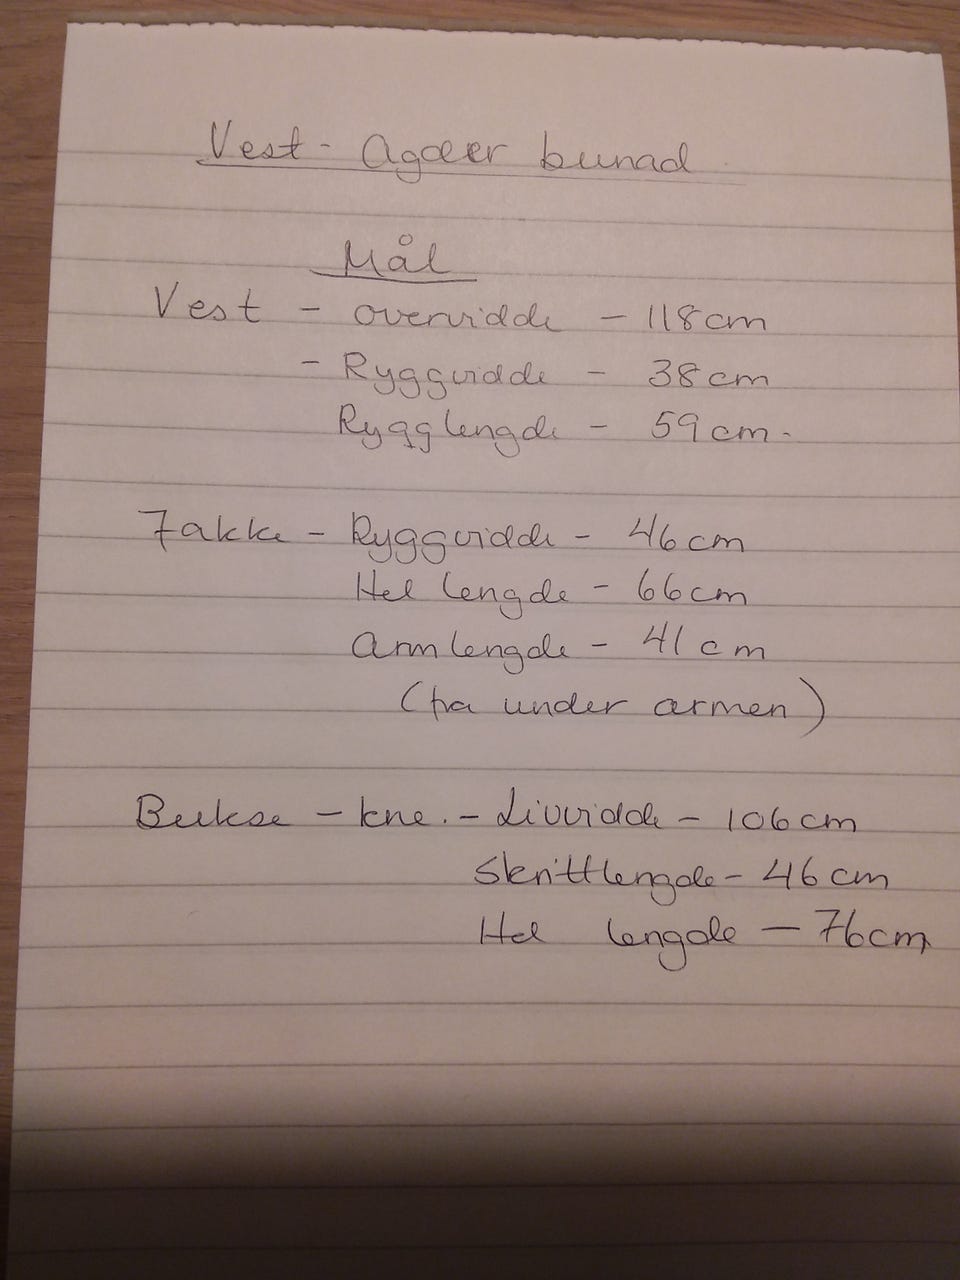 Vest - Agder bunad
Mål
Vest - overvidde - 118cm
- Ryggvidde - 38cm
Rygglengde - 59cm.
Jakke - Ryggvidde - 46cm
Hel lengde - 66cm
Armlengde - 41cm
(fra under armen)
Bukse - kne. - Livvidde - 106cm
Skrittlengde - 46cm
Hel lengde - 76cm